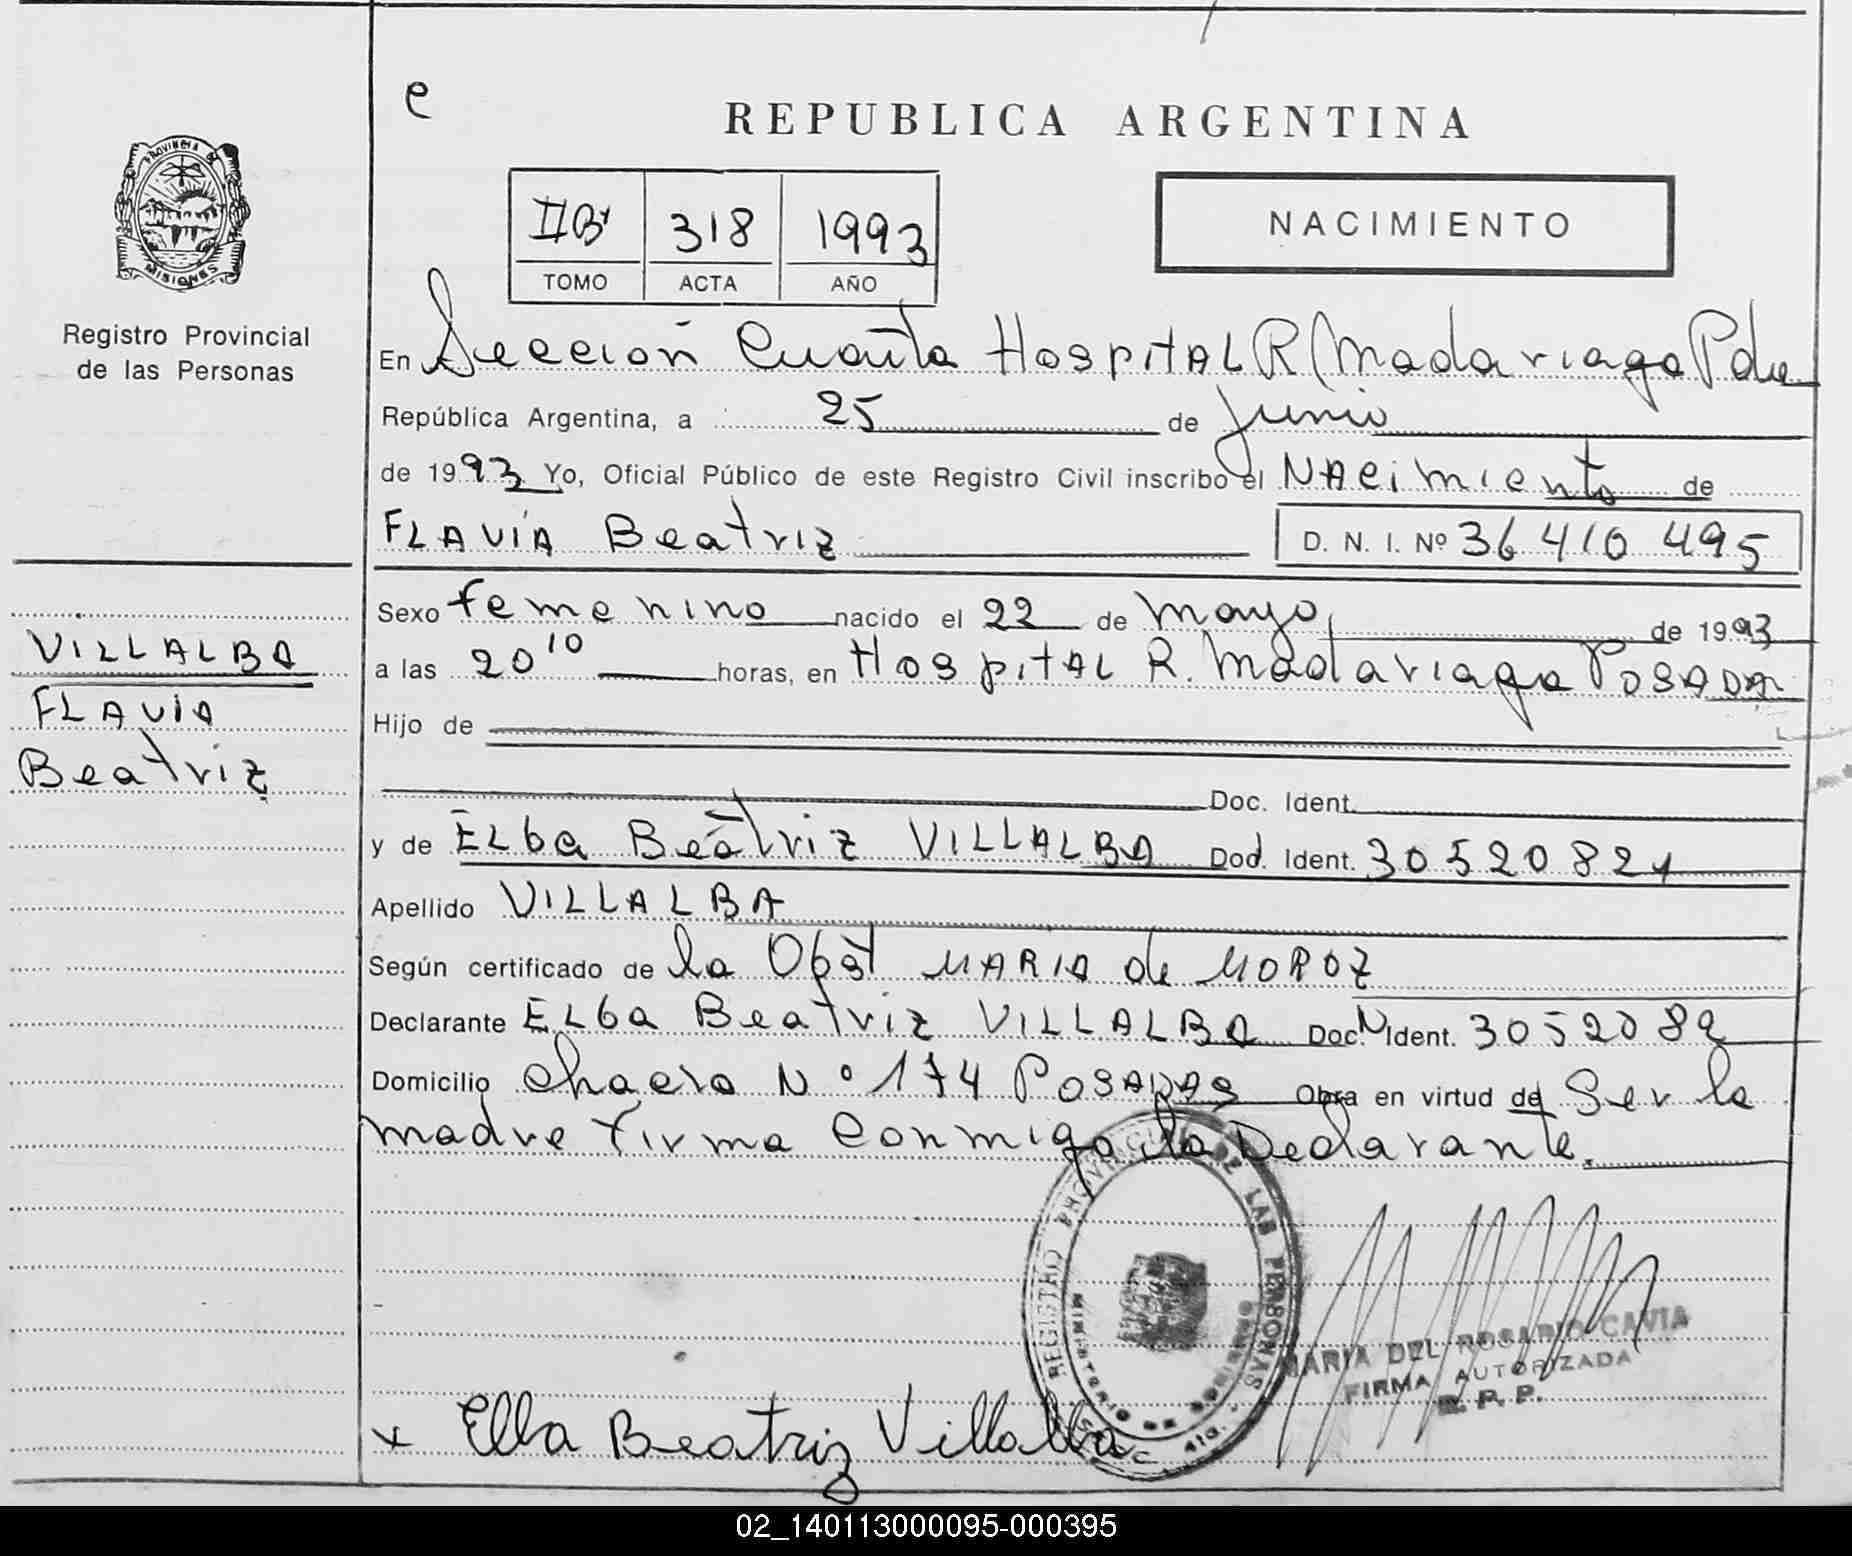 e
REPUBLICA ARGENTINA
PROVINCIA DE
MISIONES
Registro Provincial
de las Personas
318 1993
TOMO ACTA AÑO
NACIMIENTO
En Sección Cuarta Hospital R Madariaga Pdas
República Argentina, a 25 de Junio
de 1993 Yo, Oficial Público de este Registro Civil inscribo el NAcimiento de
FLAVIA Beatriz D. N. I. Nº 36 410 495
Sexo femenino nacido el 22 de mayo de 1993
a las 20 10 horas, en Hospital R. Madariaga POSADA
Hijo de
Doc. Ident.
y de ELba Beatriz VILLALBA Doc. Ident. 30520821
Apellido VILLALBA
Según certificado de la Obst MARIA de MOROZ
Declarante ELba Beatriz VILLALBA Doc. Ident. 3052082
Domicilio chacra Nº 174 POSADAS Obra en virtud de Ser la
madre firma conmigo la Declarante.
VILLALBA
FLAVIA
Beatriz
REGISTRO PROVINCIAL DE LAS PERSONAS
MINISTERIO DE GOBIERNO
SECC. 4ta.
MARIA DEL ROSARIO CAVIA
FIRMA AUTORIZADA
R. P. P.
x Elba Beatriz Villalba
02_140113000095-000395